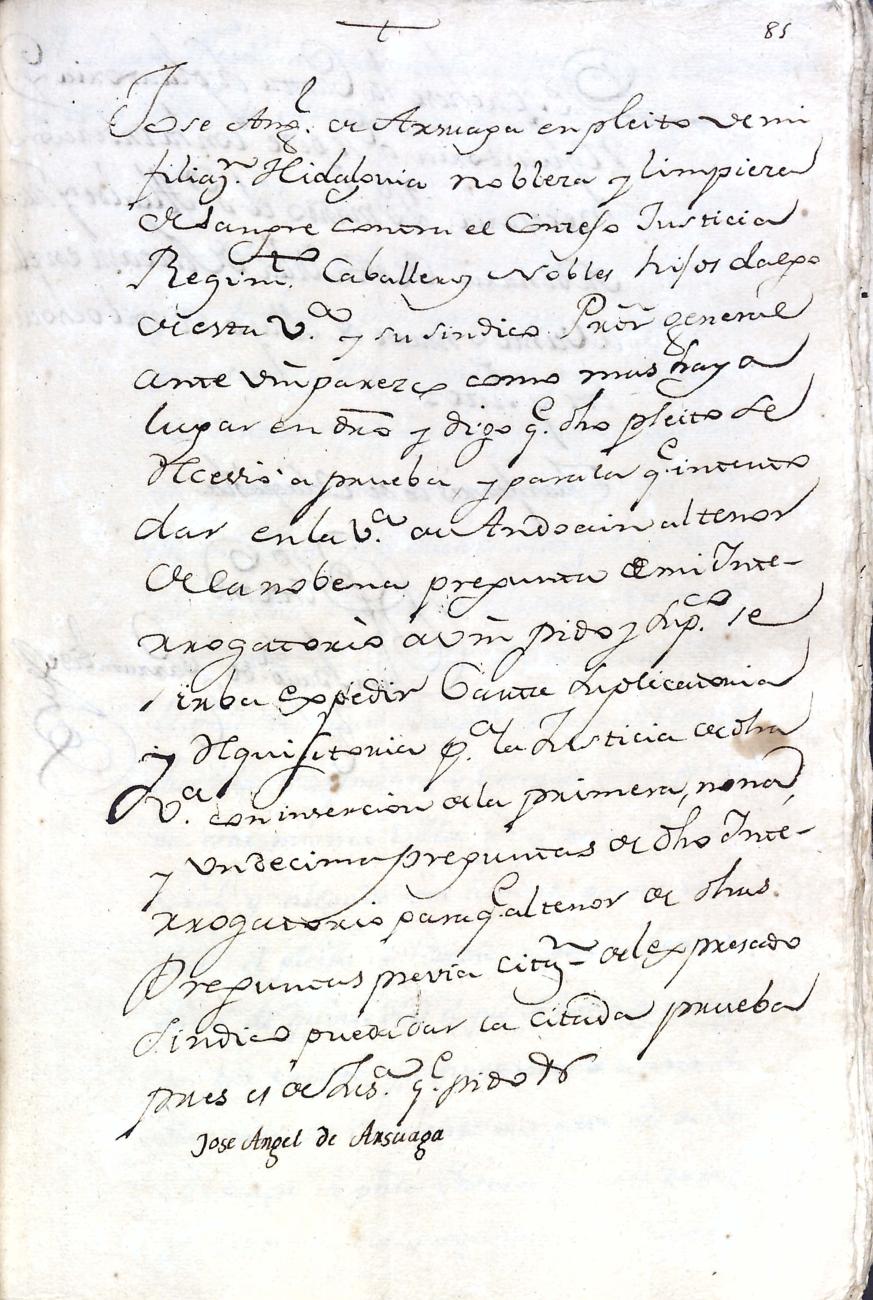 85
Jose Ang.l de Arsuaga en pleito de mi
filiaz.n Hidalguia nobleza y limpieza
de sangre contra el Consejo Justicia
Regim.to Caballeros Nobles hijos dalgo
de esta V.a y su sindico Pror general
ante Vm parezco como mas haya
lugar en dro y digo q.e dho pleito se
Recevió a prueba y para la q.e intento
dar en la V.a de Andoain al tenor
de la nobena pregunta de mi Inte-
rrogatorio a Vm pido y sup.co se
sirba expedir Carta suplicatoria
y Requisitoria p.a la Justicia de dha
V.a con insercion de la primera, nona,
y undecima preguntas de dho Inte-
rrogatorio para q.e al tenor de dhas
Preguntas previa citaz.n del expresado
Sindico pueda dar la citada prueba
pues es de Jus.a q.e pido &
Jose Angel de Arsuaga